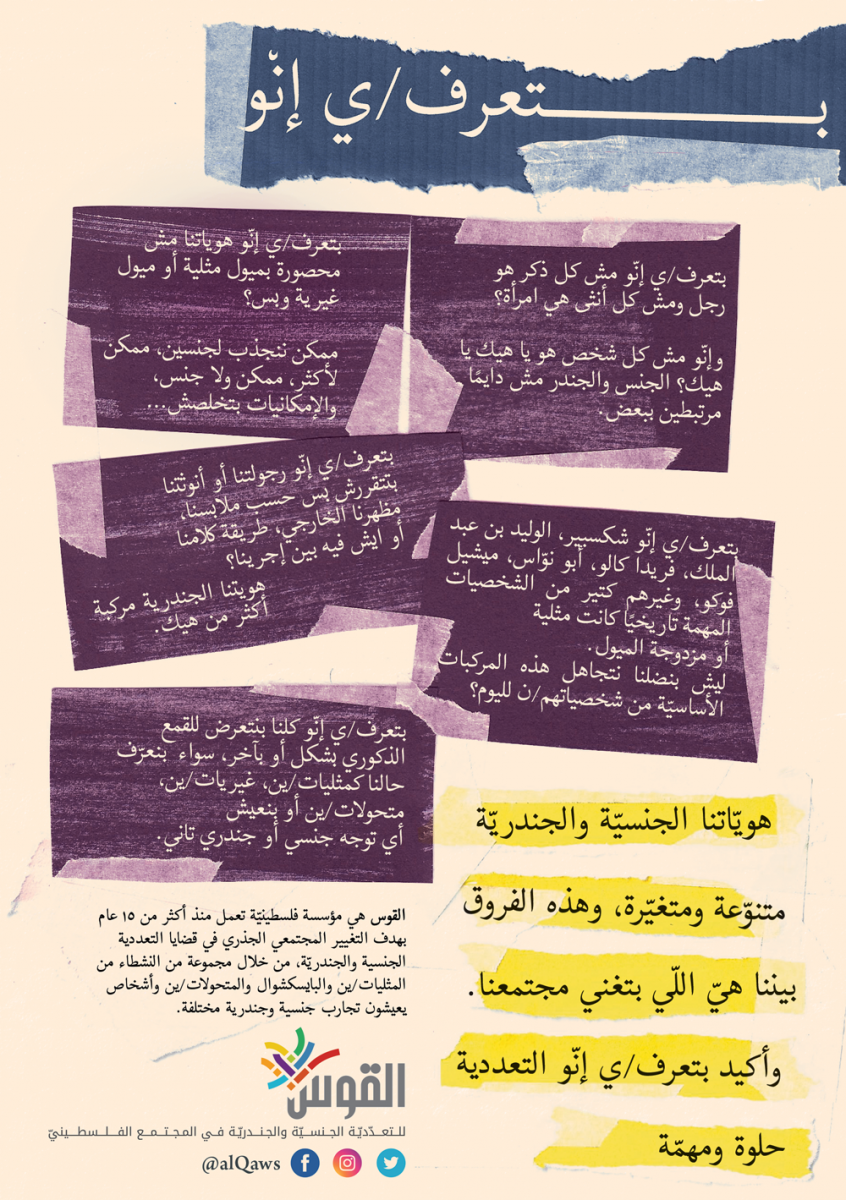 بتعرف/ي إنّو
بتعرف/ي إنّو مش كل ذكر هو
رجل ومش كل أنثى هي امرأة؟
وإنّو مش كل شخص هو يا هيك يا
هيك؟ الجنس والجندر مش دايمًا
مرتبطين ببعض.
بتعرف/ي إنّو هوياتنا مش
محصورة بميول مثلية أو ميول
غيرية وبس؟
ممكن ننجذب لجنسين، ممكن
لأكثر، ممكن ولا جنس،
والإمكانيات بتخلصش...
بتعرف/ي إنّو رجولتنا أو أنوثتنا
بتتقررش بس حسب ملابسنا،
مظهرنا الخارجي، طريقة كلامنا
أو ايش فيه بين إجرينا؟
هويتنا الجندرية مركبة
أكثر من هيك.
بتعرف/ي إنّو شكسبير، الوليد بن عبد
الملك، فريدا كالو، أبو نوّاس، ميشيل
فوكو، وغيرهم كتير من الشخصيات
المهمة تاريخيًا كانت مثلية
أو مزدوجة الميول.
ليش بنضلنا نتجاهل هذه المركبات
الأساسيّة من شخصياتهم/ن لليوم؟
بتعرف/ي إنّو كلنا بنتعرض للقمع
الذكوري بشكل أو بآخر، سواء بنعرّف
حالنا كمثليات/ين، غيريات/ين،
متحولات/ين أو بنعيش
أي توجه جنسي أو جندري تاني.
هويّاتنا الجنسيّة والجندريّة
متنوّعة ومتغيّرة، وهذه الفروق
بيننا هيّ اللّي بتغني مجتمعنا.
وأكيد بتعرف/ي إنّو التعددية
حلوة ومهمّة
القوس هي مؤسسة فلسطينيّة تعمل منذ أكثر من ١٥ عام
بهدف التغيير المجتمعي الجذري في قضايا التعددية
الجنسية والجندريّة، من خلال مجموعة من النشطاء من
المثليات/ين والبايسكشوال والمتحولات/ين وأشخاص
يعيشون تجارب جنسية وجندرية مختلفة.
القوس
للتعدّديّة الجنسيّة والجندريّة في المجتمع الفلسطينيّ
@alQaws